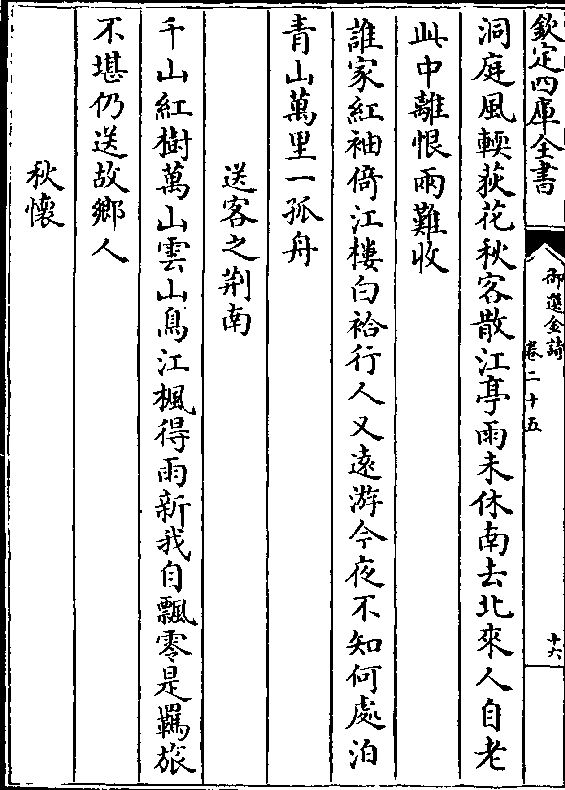 欽定四庫全書
御選金詩
卷二十五
十六
洞庭風輭荻花秋客散江亭雨未休南去北來人自老
此中離恨雨難收
誰家紅袖倚江樓白袷行人又遠游今夜不知何處泊
青山萬里一孤舟
送客之荆南
千山紅樹萬山雲山鳥江楓得雨新我自飄零是羈旅
不堪仍送故鄉人
秋懷